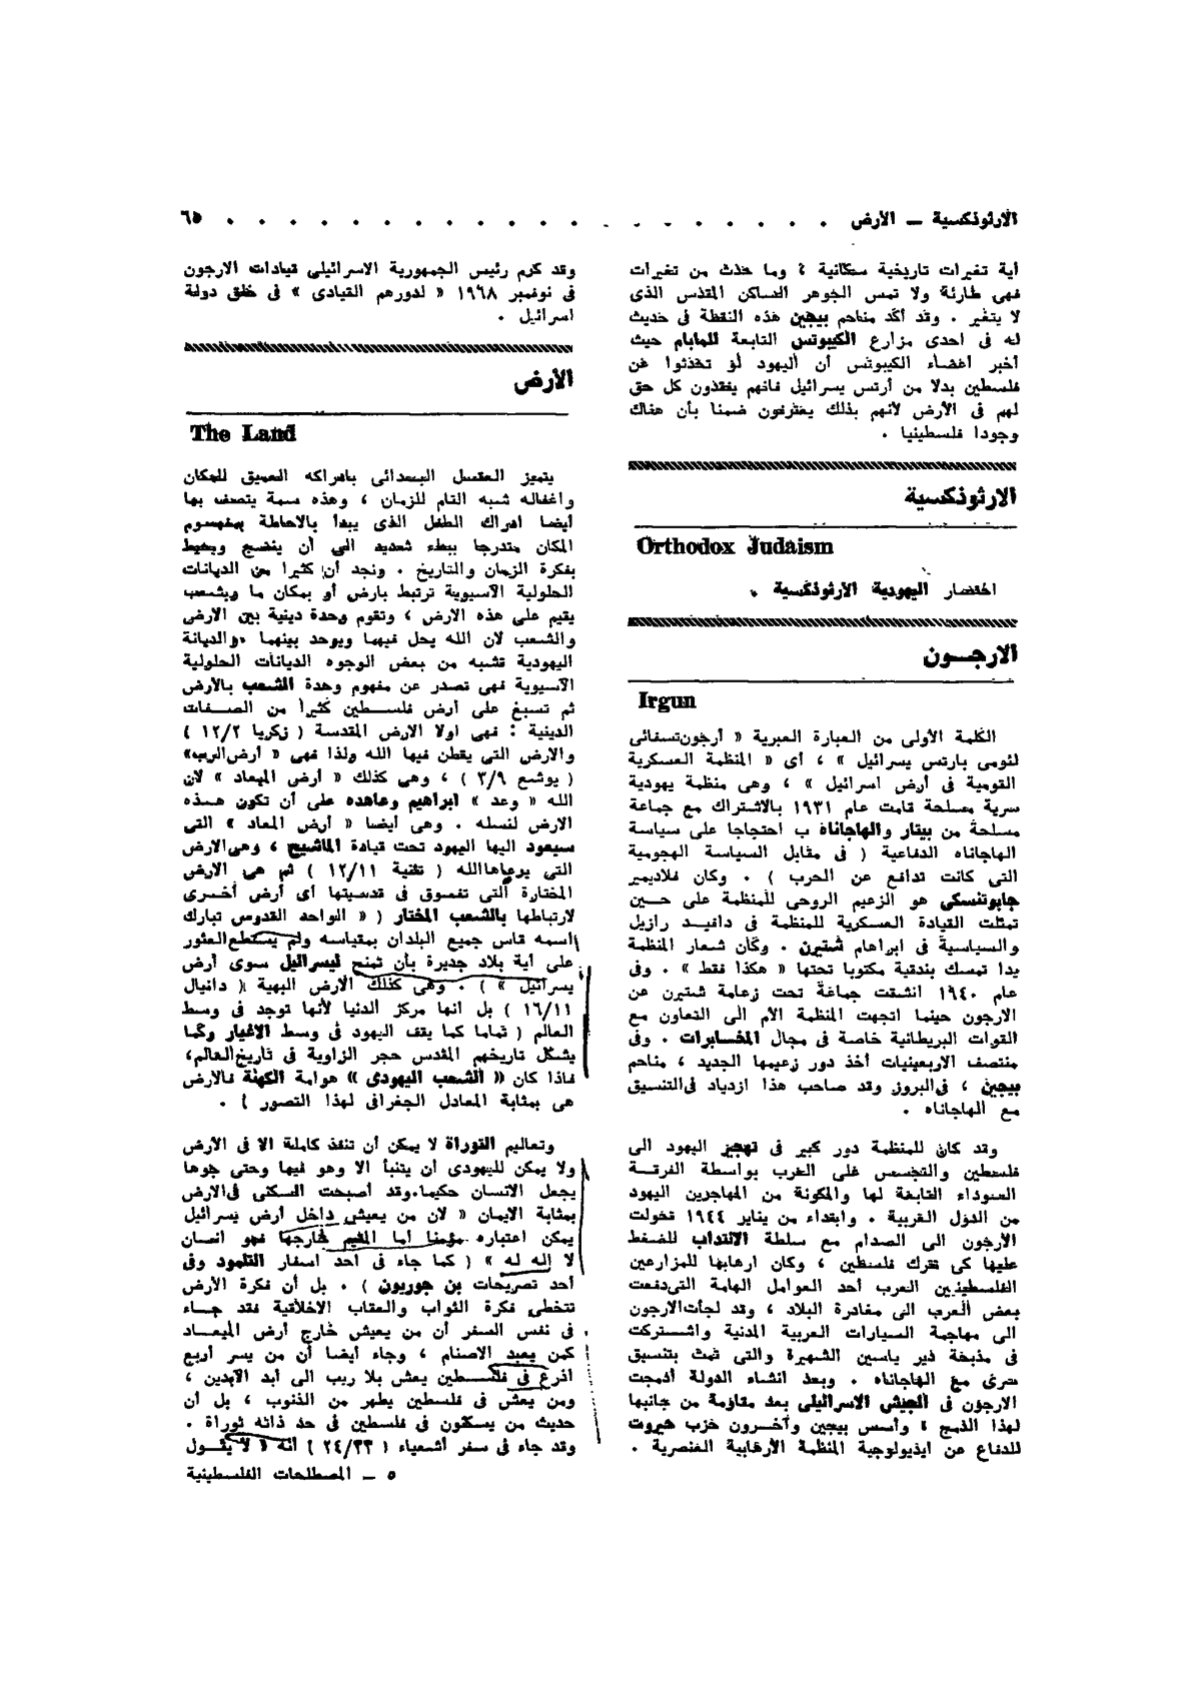 الأرثوذكسية — الأرض . . . . . . . . . . . . . . . . . . . . ٦٥
أية تغيرات تاريخية سكانية ، وما حدث من تغيرات
فهى طارئة ولا تمس الجوهر الساكن المقدس الذى
لا يتغير . وقد أكد مناحم بيجين هذه النقطة فى حديث
له فى احدى مزارع الكيبوتس التابعة للمابام حيث
أخبر أعضاء الكيبوتس أن اليهود لو تحدثوا عن
فلسطين بدلا من أرتس يسرائيل فانهم يفقدون كل حق
لهم فى الأرض لأنهم بذلك يعترفون ضمنا بأن هناك
وجودا فلسطينيا .
الارثوذكسية
Orthodox Judaism
اختصار اليهودية الأرثوذكسية .
الارجـــون
Irgun
الكلمة الأولى من العبارة العبرية « أرجون تسفائى
لئومى بارتس يسرائيل » ، أى « المنظمة العسكرية
القومية فى أرض اسرائيل » ، وهى منظمة يهودية
سرية مسلحة قامت عام ١٩٣١ بالاشتراك مع جماعة
مسلحة من بيتار والهاجاناه ب احتجاجا على سياسة
الهاجاناه الدفاعية ( فى مقابل السياسة الهجومية
التى كانت تدافع عن الحرب ) . وكان فلاديمير
جابوتنسكى هو الزعيم الروحى للمنظمة على حـــين
تمثلت القيادة العسكرية للمنظمة فى دافيـــد رازيل
والسياسية فى ابراهام شتيرن . وكان شعار المنظمة
يدا تمسك بندقية مكتوبا تحتها « هكذا فقط » . وفى
عام ١٩٤٠ انشقت جماعة تحت زعامة شتيرن عن
الارجون حينما اتجهت المنظمة الأم الى التعاون مع
القوات البريطانية خاصة فى مجال المخـــابرات . وفى
منتصف الاربعينيات أخذ دور زعيمها الجديد ، مناحم
بيجين ، فى البروز وقد صاحب هذا ازدياد فى التنسيق
مع الهاجاناه .
وقد كان للمنظمة دور كبير فى تهجير اليهود الى
فلسطين والتجسس على العرب بواسطة الفرقـــة
السوداء التابعة لها والمكونة من المهاجرين اليهود
من الدول العربية . وابتداء من يناير ١٩٤٤ تحولت
الأرجون الى الصدام مع سلطة الانتداب للضغط
عليها كى تترك فلسطين ، وكان ارهابها للمزارعين
الفلسطينيين العرب أحد العوامل الهامة التى دفعت
بعض العرب الى مغادرة البلاد ، وقد لجأت الارجون
الى مهاجمة السيارات العربية المدنية واشـــتركت
فى مذبحة دير ياسين الشهيرة والتى تمت بتنسيق
سرى مع الهاجاناه . وبعد انشاء الدولة أدمجت
الارجون فى الجيش الاسرائيلى بعد مقاومة من جانبها
لهذا الدمج ، وأسس بيجين وآخـــرون حزب حيروت
للدفاع عن ايديولوجية المنظمة الأرهابية العنصرية .
وقد كرم رئيس الجمهورية الاسرائيلى قيادات الارجون
فى نوفمبر ١٩٦٨ « لدورهم القيادى » فى خلق دولة
اسرائيل .
الأرض
The Land
يتميز العقـــل البـــدائى بادراكه العميق للمكان
واغفاله شبه التام للزمان ، وهذه سمة يتصف بها
أيضا ادراك الطفل الذى يبدأ بالاحاطة بمفهـــوم
المكان متدرجا ببطء شديد الى أن ينضج ويحيط
بفكرة الزمان والتاريخ . ونجد أن كثيرا من الديانات
الحلولية الآسيوية ترتبط بارض أو بمكان ما وبشـــعب
يقيم على هذه الارض ، وتقوم وحدة دينية بين الارض
والشعب لان الله يحل فيهما ويوحد بينهما . والديانة
اليهودية تشبه من بعض الوجوه الديانات الحلولية
الآسيوية فهى تصدر عن مفهوم وحدة الشعب بالارض
ثم تسبغ على أرض فلســـطين كثيرا من الصـــفات
الدينية : فهى اولا الارض المقدسة ( زكريا ١٢/٢ )
والارض التى يقطن فيها الله ولذا فهى « أرض الرب»
( يوشع ٣/٩ ) ، وهى كذلك « أرض الميعاد » لان
الله « وعد » ابراهيم وعاهده على أن تكون هـــذه
الارض لنسله . وهى أيضا « أرض المعاد » التى
سيعود اليها اليهود تحت قيادة الماشيح ، وهى الارض
التى يرعاها الله ( تثنية ١٢/١١ ) ثم هى الارض
المختارة التى تفـــوق فى قدسيتها أى أرض أخـــرى
لارتباطها بالشعب المختار ( « الواحد القدوس تبارك
اسمه قاس جميع البلدان بمقياسه ولم يستطع العثور
على أية بلاد جديرة بأن تمنح ليسرائيل سوى أرض
يسرائيل » ) . وهى كذلك الأرض البهية ( دانيال
١٦/١١ ) بل انها مركز الدنيا لأنها توجد فى وسط
العالم ( تماما كما يقف اليهود فى وسط الاغيار وكما
يشكل تاريخهم المقدس حجر الزاوية فى تاريخ العالم،
فاذا كان « الشعب اليهودى » هو أمة الكهنة فالارض
هى بمثابة المعادل الجغرافى لهذا التصور ) .
وتعاليم التوراة لا يمكن أن تنفذ كاملة الا فى الأرض
ولا يمكن لليهودى أن يتنبأ الا وهو فيها وحتى جوها
يجعل الانسان حكيما. وقد أصبحت السكنى فى الارض
بمثابة الايمان « لان من يعيش داخل أرض يسرائيل
يمكن اعتباره مؤمنا أما المقيم خارجها فهو انسان
لا إله له » ( كما جاء فى أحد اسفار التلمود وفى
أحد تصريحات بن جوريون ) . بل أن فكرة الأرض
تتخطى فكرة الثواب والعقاب الاخلاقية فقد جـــاء
فى نفس السفر أن من يعيش خارج أرض الميعـــاد
كمن يعبد الاصنام ، وجاء أيضا أن من يسر أربع
أذرع فى فلســـطين يعش بلا ريب الى أبد الآبدين ،
ومن يعش فى فلسطين يطهر من الذنوب ، بل أن
حديث من يسكنون فى فلسطين فى حد ذاته توراة .
وقد جاء فى سفر أشعياء ( ٢٤/٣٣ ) أنه « لا يقـــول
٥ — المصطلحات الفلسطينية